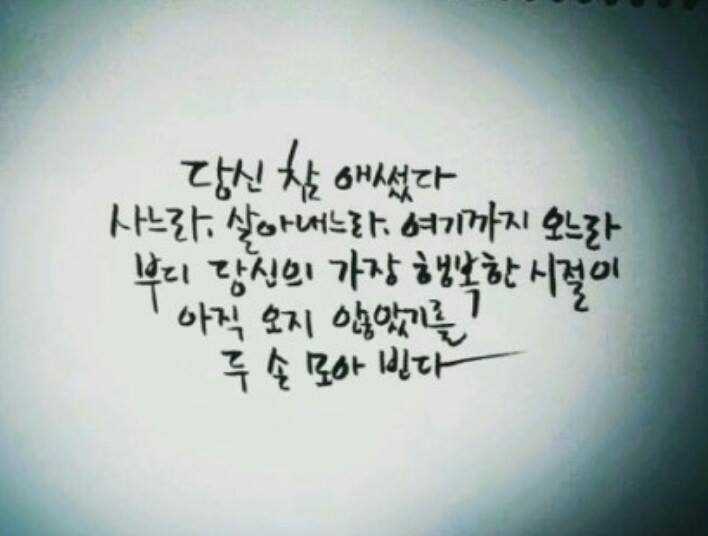 당신 참 애썼다
사느라, 살아내느라, 여기까지 오느라
부디 당신의 가장 행복한 시절이
아직 오지 않았기를
두 손 모아 빈다